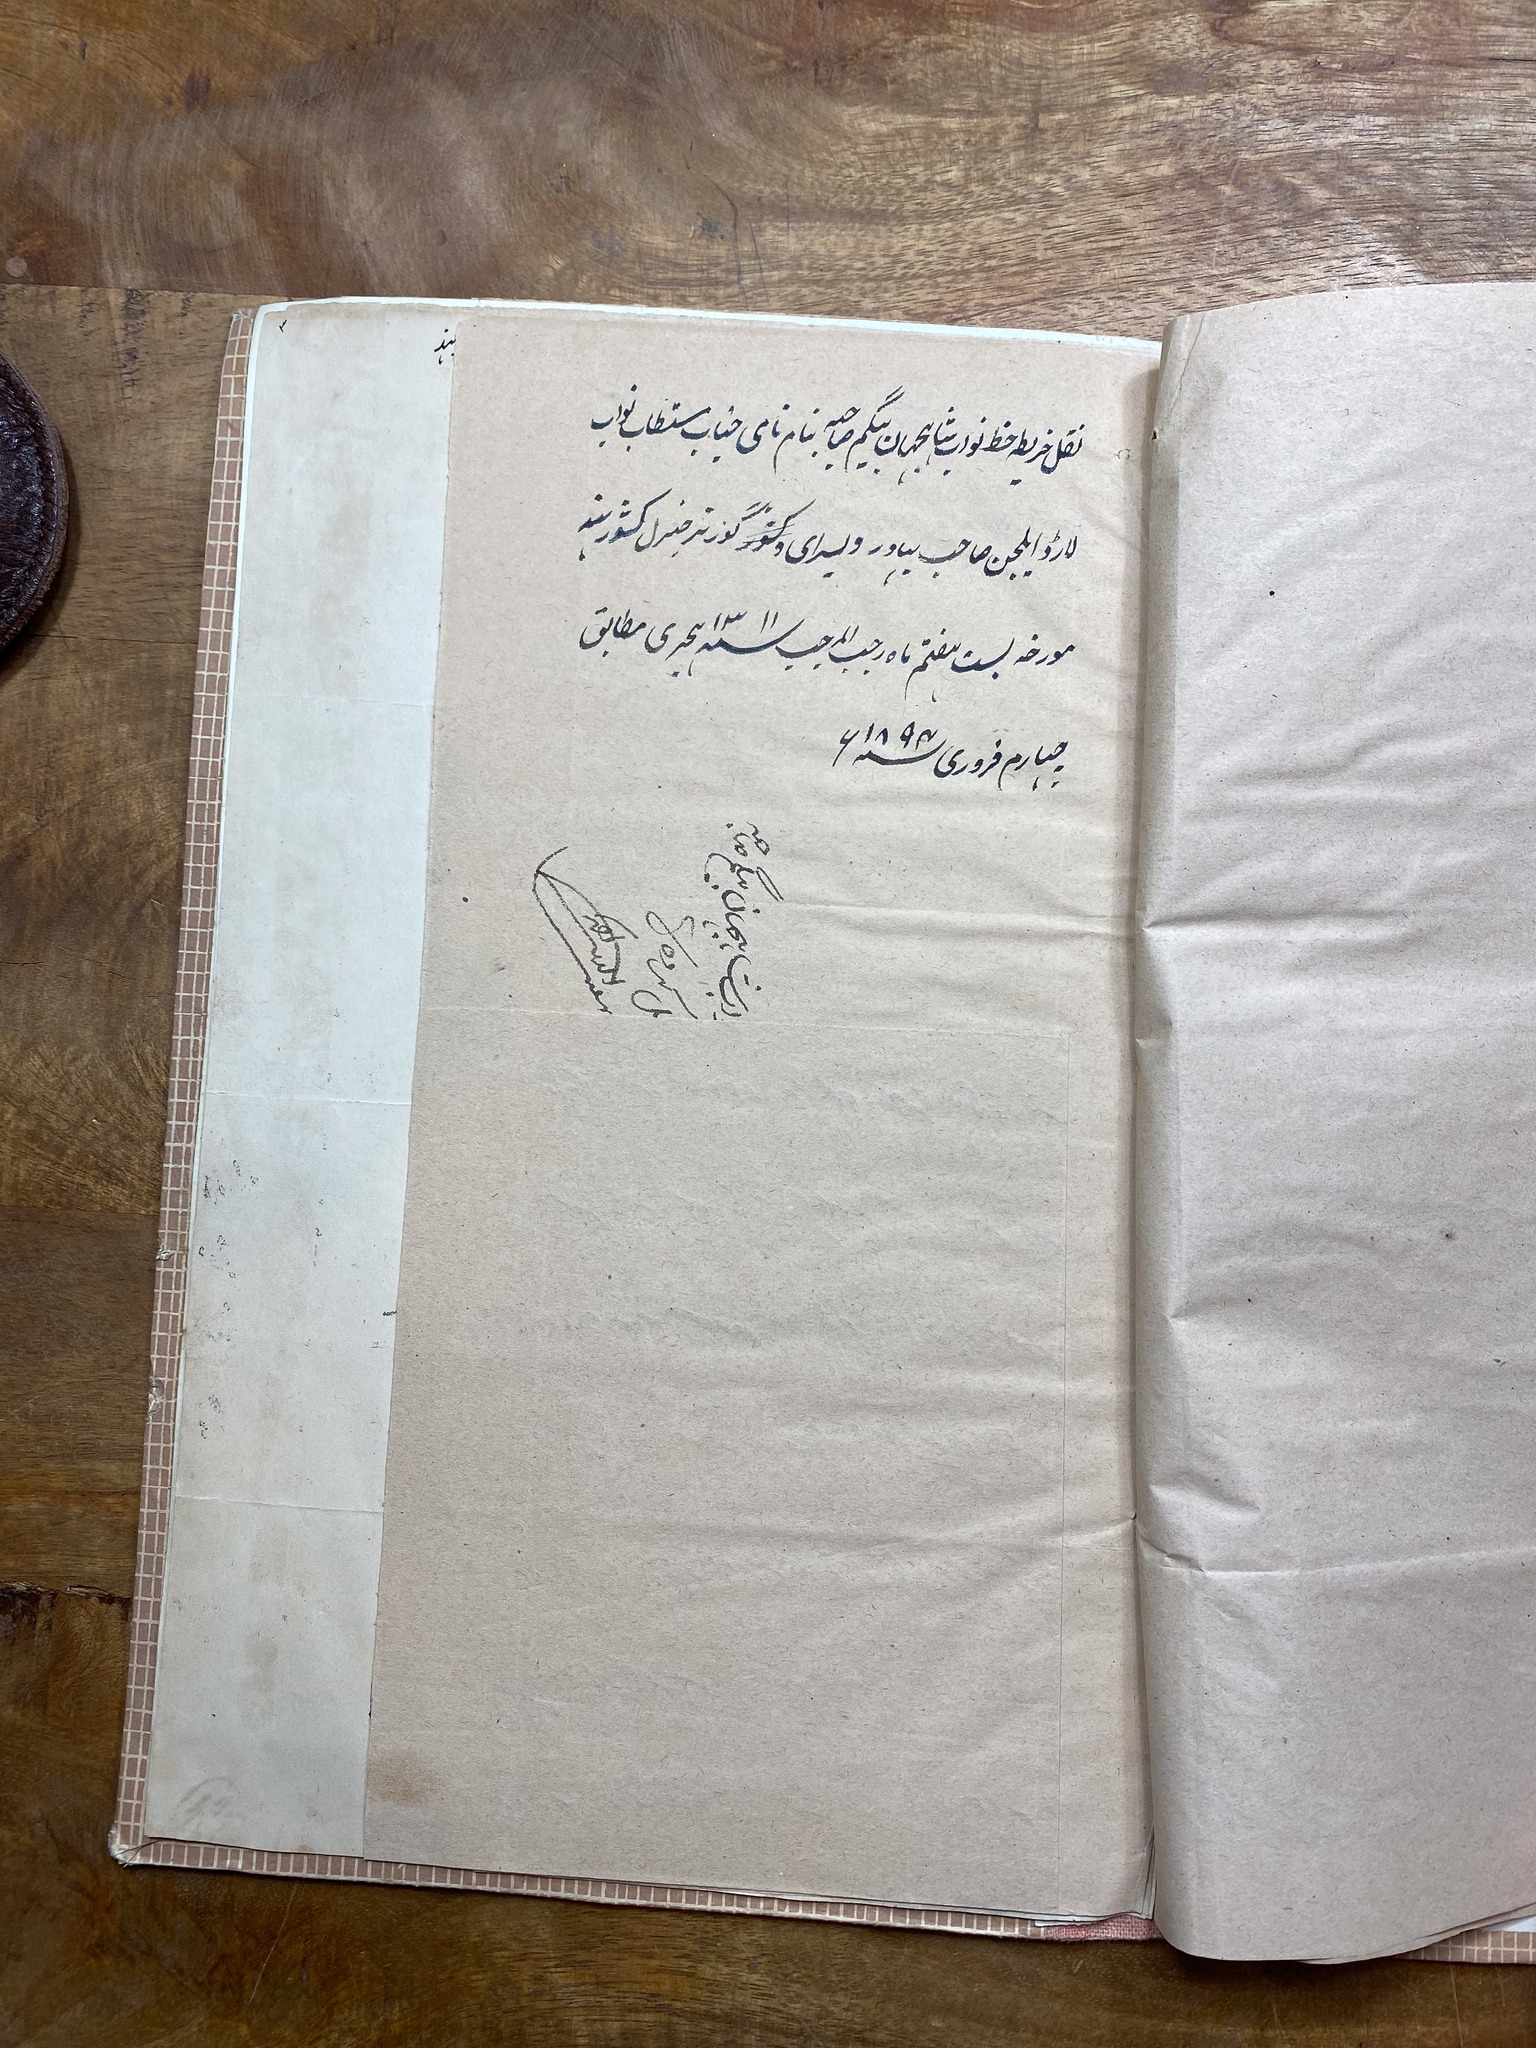 نقل خریطہ خط نواب شاہجہان بیگم صاحبہ بنام نامی جناب مستطاب نواب
لارڈ ایلجن صاحب بہادر ویسرای و کشور گورنر جنرل کشور ہند
مورخہ بست ہفتم ماہ رجب المرجب سنہ ۱۳۱۱ ہجری مطابق
چہارم فروری سنہ ۱۸۹۴ء
بیگم
ہند